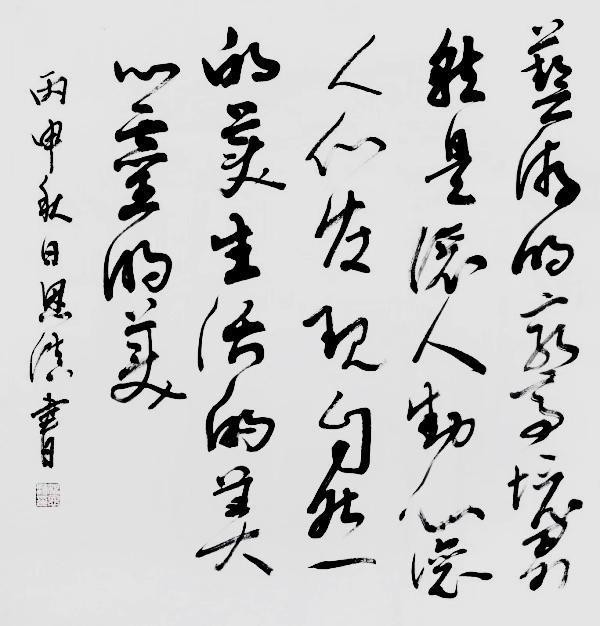 藝術的最高境界
就是讓人動心讓
人們發現自然
的美生活的美
心靈的美
丙申秋日恩書